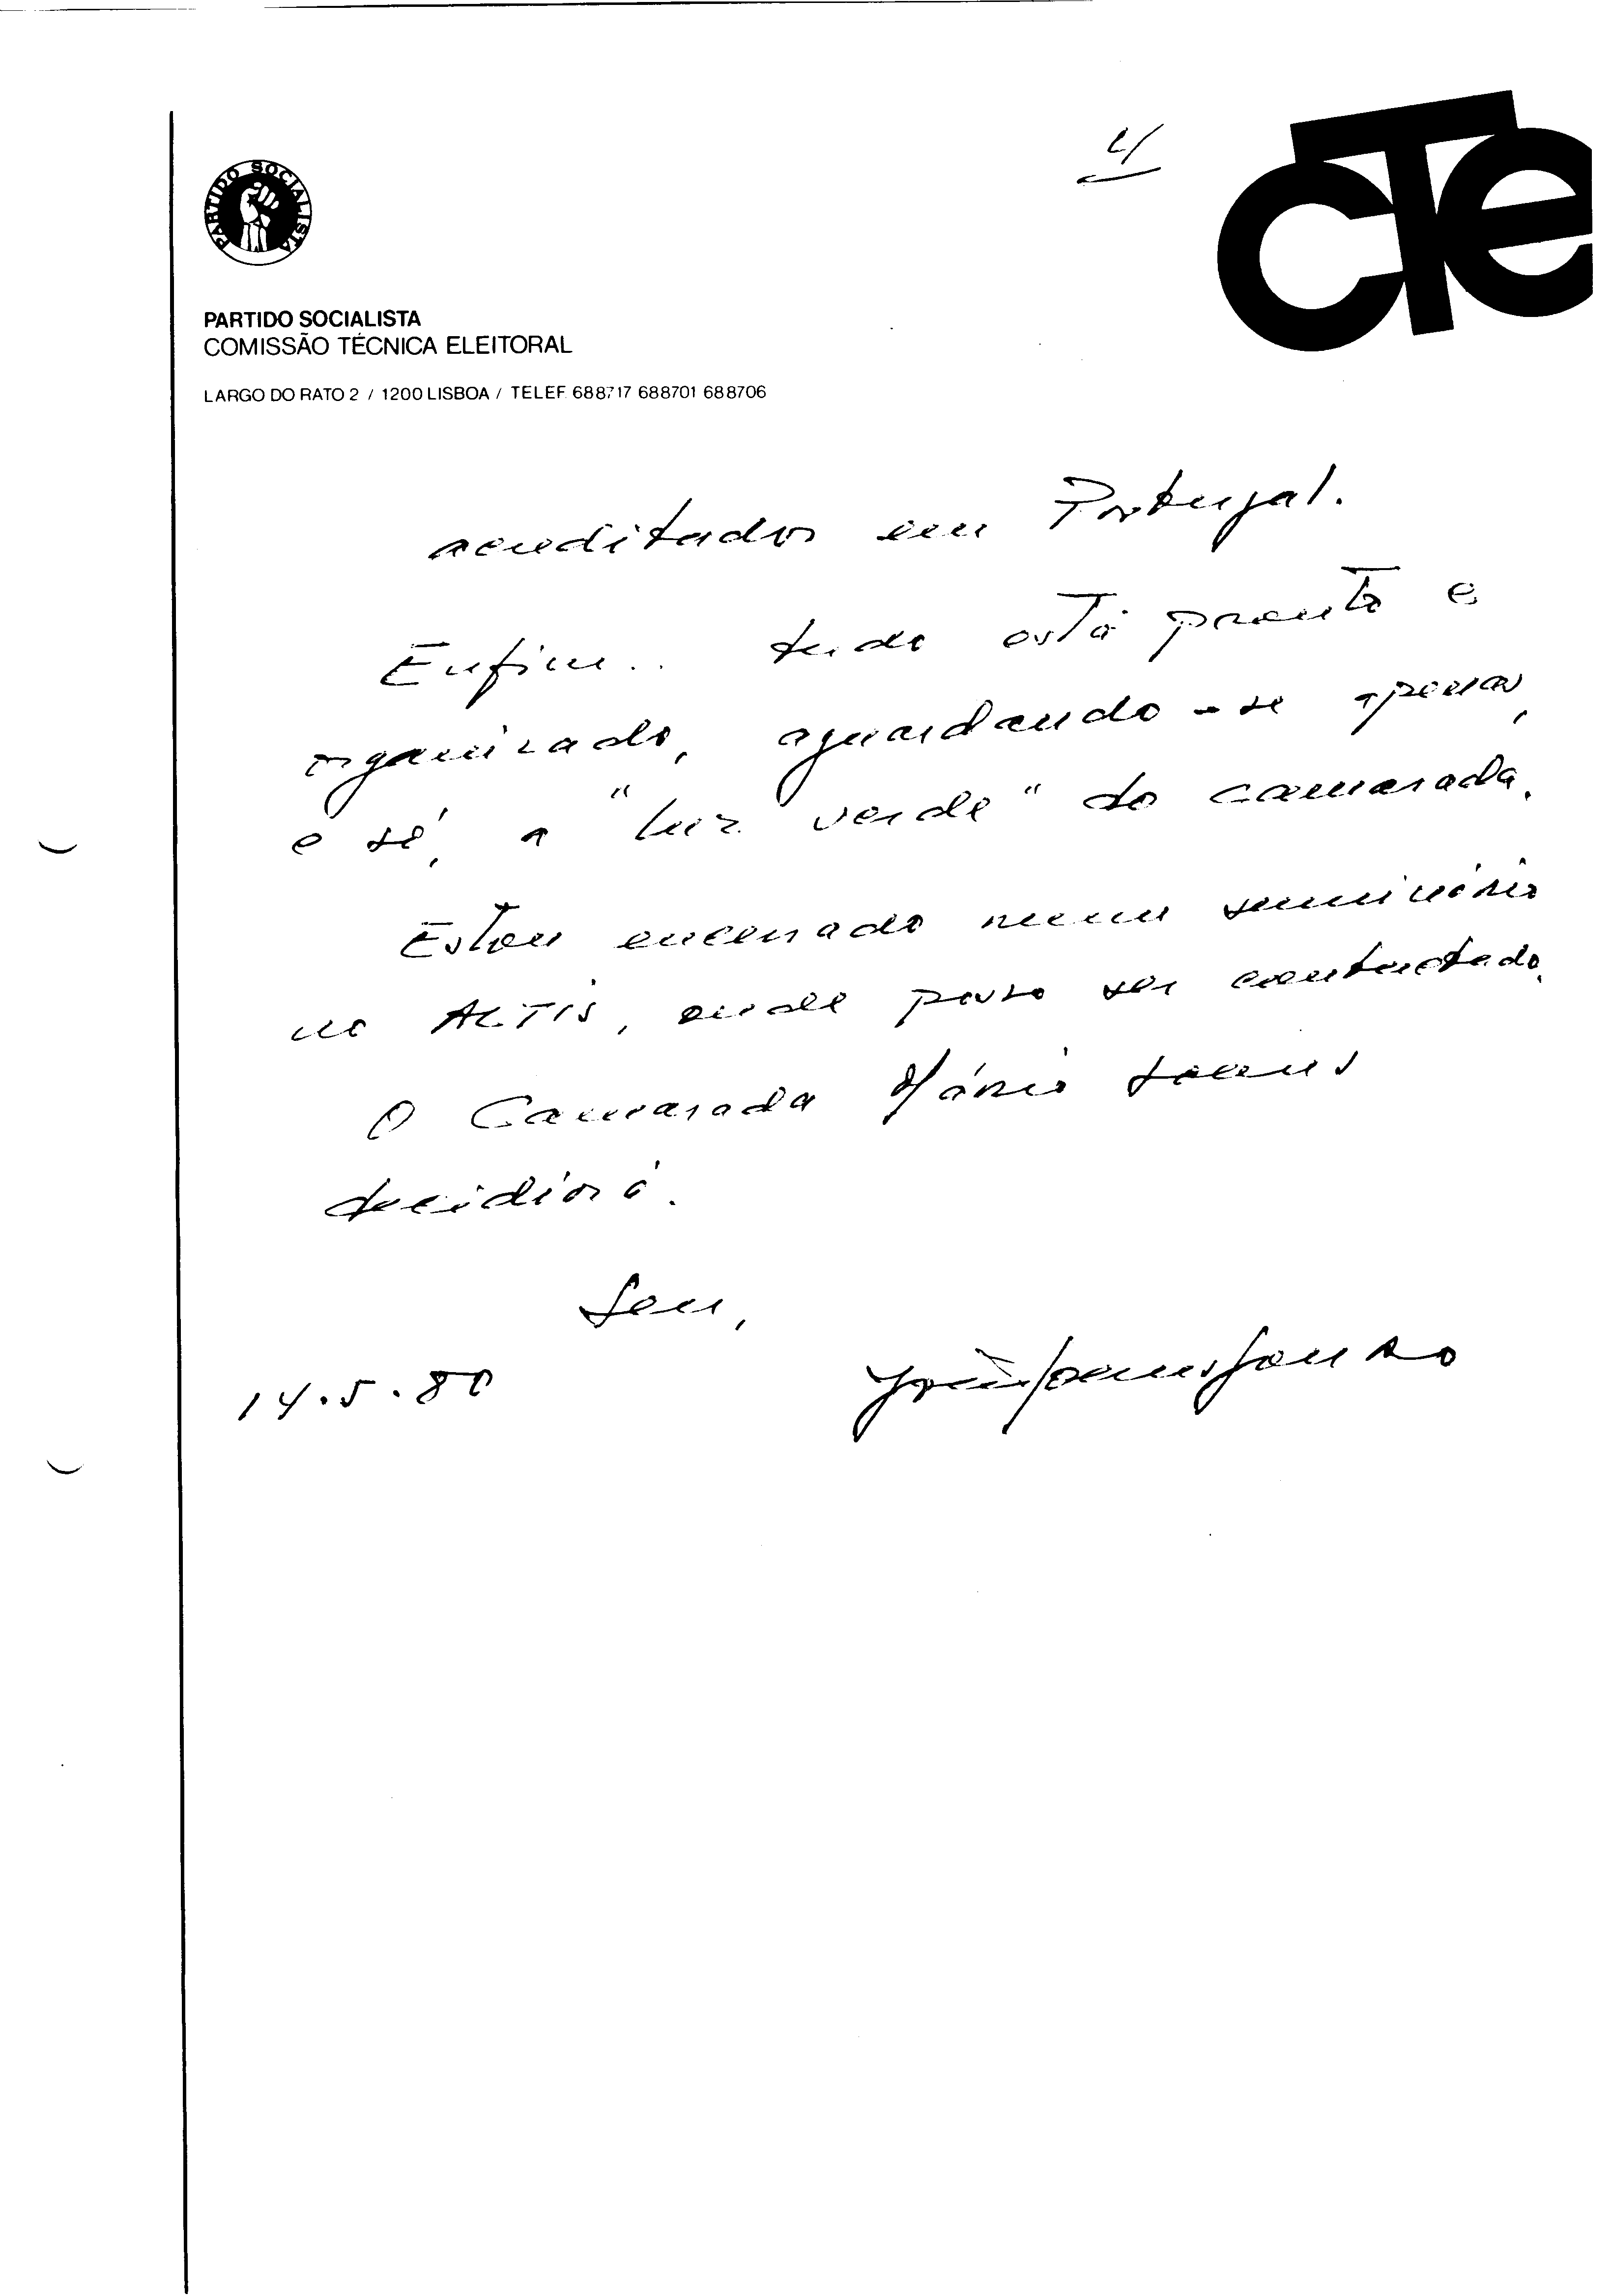 4/
CTe
PARTIDO SOCIALISTA
PARTIDO SOCIALISTA
COMISSÃO TÉCNICA ELEITORAL
LARGO DO RATO 2 / 1200 LISBOA / TELEF. 688717 688701 688706
acreditados em Portugal.
Enfim.. tudo está pronto e
organizado, aguardando-se apenas,
e só, a "luz verde" do camarada.
Estou encerrado num seminário
no ALTIS, onde posso ser contactado.
O Camarada Mário Soares
decidirá.
Seu,
14.5.80